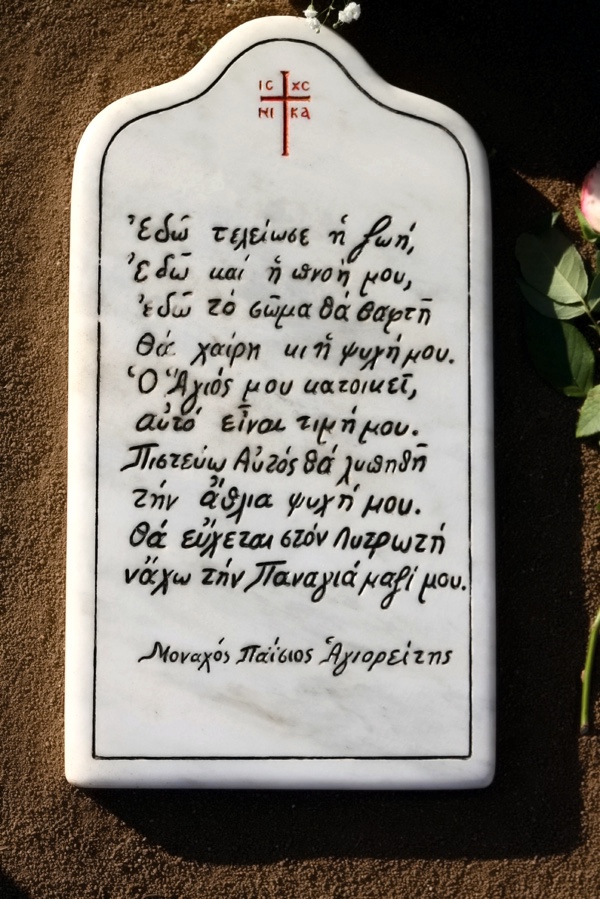 ΙC ΧC
ΝΙ ΚΑ
Ἐδῶ τελείωσε ἡ ζωή,
Ἐδῶ καί ἡ πνοή μου,
ἐδῶ τό σῶμα θά θαρτῆ
Θά χαίρη κι ἡ ψυχή μου.
Ὁ Ἅγιός μου κατοικεῖ,
αὐτό εἶναι τιμή μου.
Πιστεύω Αὐτός θά λυπηθῆ
τήν ἄθλια ψυχή μου.
Θά εὔχεται στόν Λυτρωτή
νἄχω τήν Παναγιά μαζί μου.
Μοναχός Παΐσιος Ἁγιορείτης